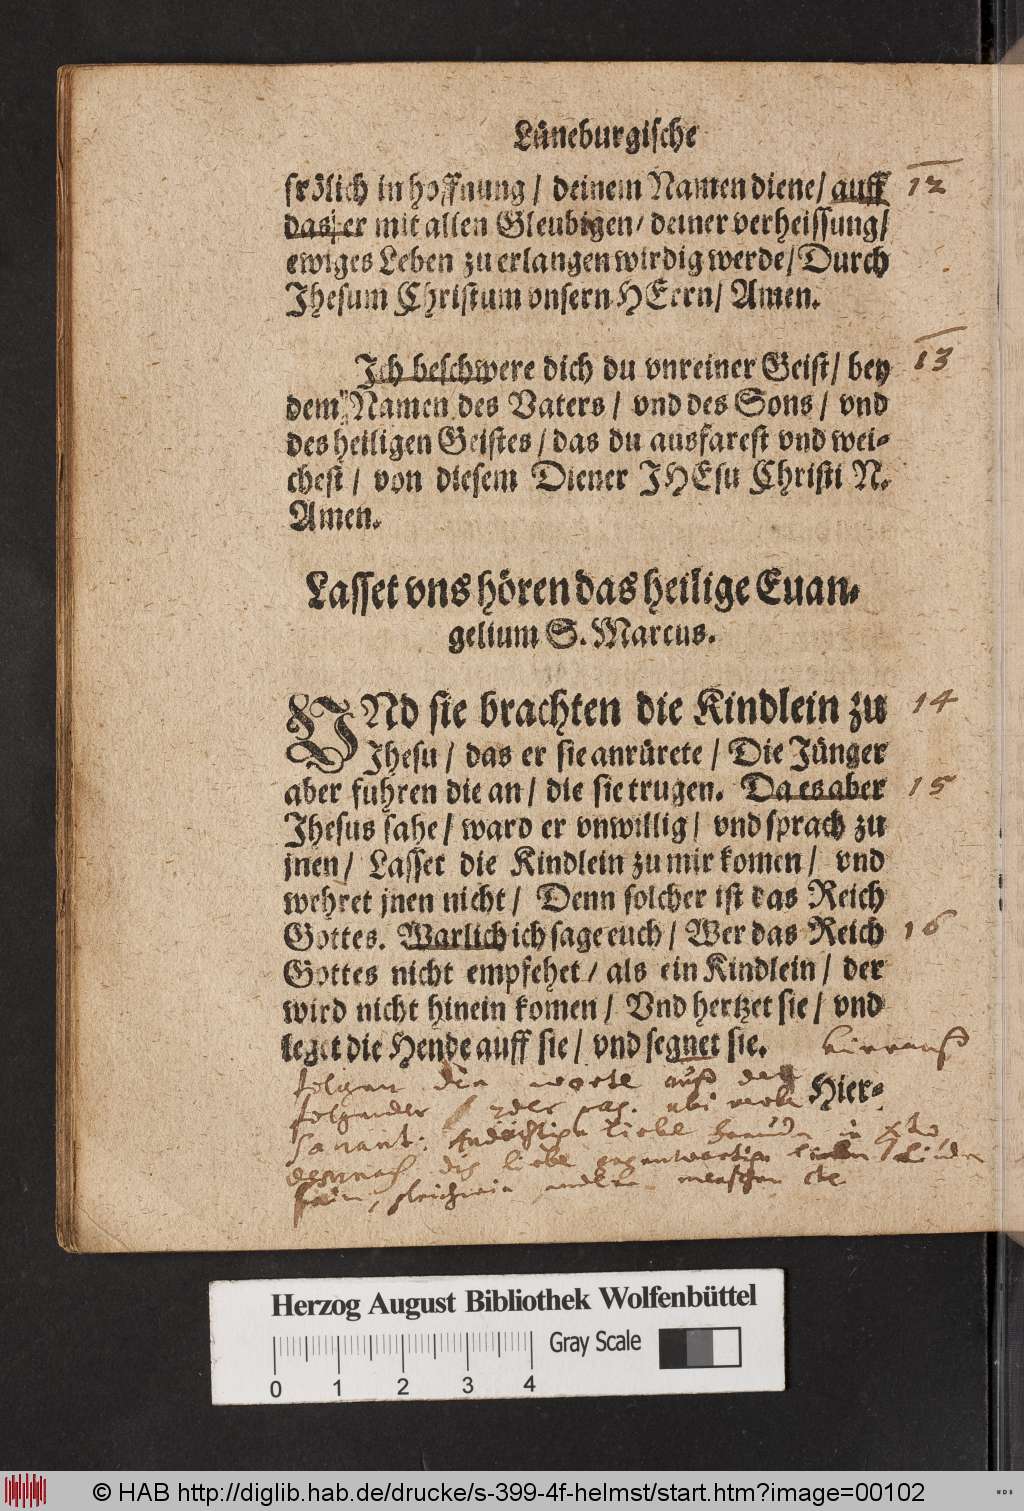 Lüneburgische
frölich in hoffnung / deinem Namen diene / auff 12
das er mit allen Gleubigen / deiner verheissung /
ewiges Leben zu erlangen wirdig werde / Durch
Jhesum Christum vnsern HErrn / Amen.
Ich beschwere dich du vnreiner Geist / bey 13
dem Namen des Vaters / vnd des Sons / vnd
des heiligen Geistes / das du ausfarest vnd wei-
chest / von diesem Diener JHEsu Christi N.
Amen.
Lasset vns hören das heilige Euan-
gelium S. Marcus.
VNd sie brachten die Kindlein zu 14
Jhesu / das er sie anrürete / Die Jünger
aber fuhren die an / die sie trugen. Da es aber 15
Jhesus sahe / ward er vnwillig / vnd sprach zu
jnen / Lasset die Kindlein zu mir komen / vnd
wehret jnen nicht / Denn solcher ist das Reich
Gottes. Warlich ich sage euch / Wer das Reich 16
Gottes nicht empfehet / als ein Kindlein / der
wird nicht hinein komen / Vnd hertzet sie / vnd
leget die Hende auff sie / vnd segnet sie. hierauß
folgen die worte auß der
Hier-
folgender
liebe
liebe
menschen etc
Herzog August Bibliothek Wolfenbüttel
Gray Scale
0 1 2 3 4
© HAB http://diglib.hab.de/drucke/s-399-4f-helmst/start.htm?image=00102